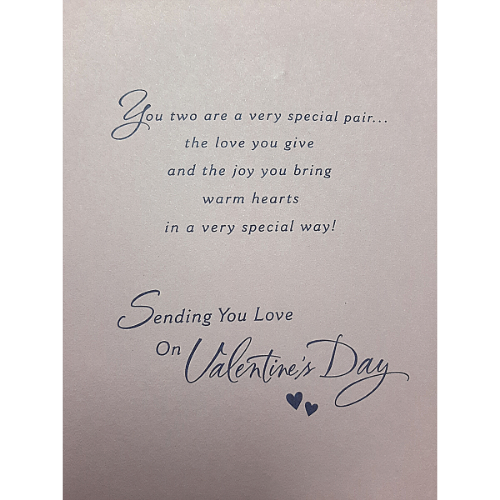 You two are a very special pair...
the love you give
and the joy you bring
warm hearts
in a very special way!
Sending You Love
On Valentine's Day